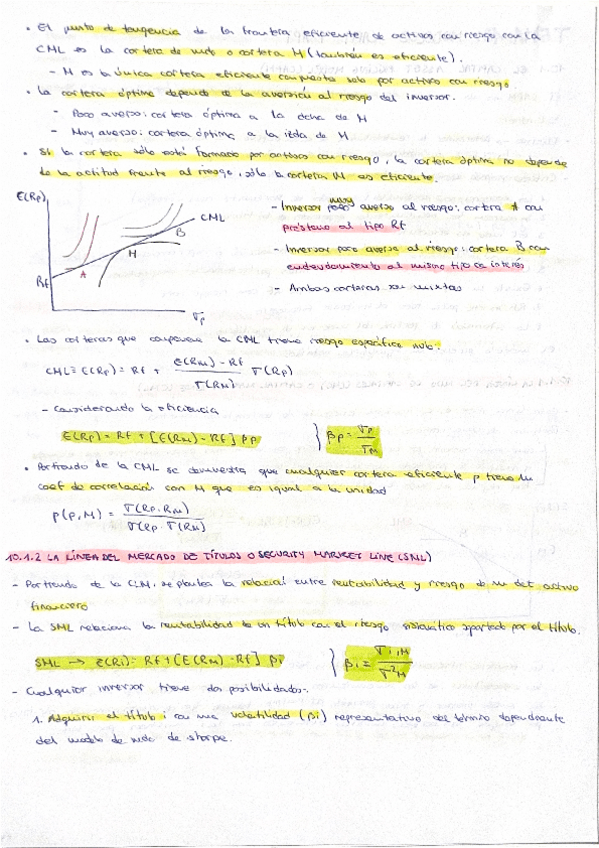 • El punto de tangencia de la frontera eficiente de activos con riesgo con la
CML es la cartera de mdo o cartera M (también es eficiente).
- M es la única cartera eficiente compuesta solo por activos con riesgo.
• La cartera óptima depende de la aversión al riesgo del inversor.
- Poco averso: cartera óptima a la dcha de M
- Muy averso: cartera óptima a la izda de M
• Si la cartera sólo está formada por activos con riesgo, la cartera óptima no depende
de la actitud frente al riesgo, sólo la cartera M es eficiente.
E(Rp)
CML
B
M
Rf
A
σp
- Inversor muy averso al riesgo: cartera A con
préstamo al tipo Rf
- Inversor poco averso al riesgo: cartera B con
endeudamiento al mismo tipo de interés
- Ambas carteras son mixtas
• Las carteras que componen la CML tienen riesgo específico nulo:
CML ≡ E(Rp) = Rf + E(RM) - Rf / σ(RM) σ(Rp)
- Considerando la eficiencia
E(Rp) = Rf + [E(RM) - Rf] βp } βp = σp / σM
• Partiendo de la CML se demuestra que cualquier cartera eficiente p tiene un
coef de correlación con M que es igual a la unidad
ρ(p,M) = σ(Rp.RM) / σ(Rp.σ(RM)
10.1.2 LA LÍNEA DEL MERCADO DE TÍTULOS O SECURITY MARKET LINE (SML)
- Partiendo de la CLM, se plantea la relación entre rentabilidad y riesgo de un det activo
financiero
- La SML relaciona la rentabilidad de un título con el riesgo sistemático aportado por el título.
SML → E(Ri) = Rf + [E(RM) - Rf] βi } βi = σi,M / σ²M
- Cualquier inversor tiene dos posibilidades:
1. Adquirir el título i con una volatilidad (βi) representativa del término dependiente
del modelo de mdo de sharpe.